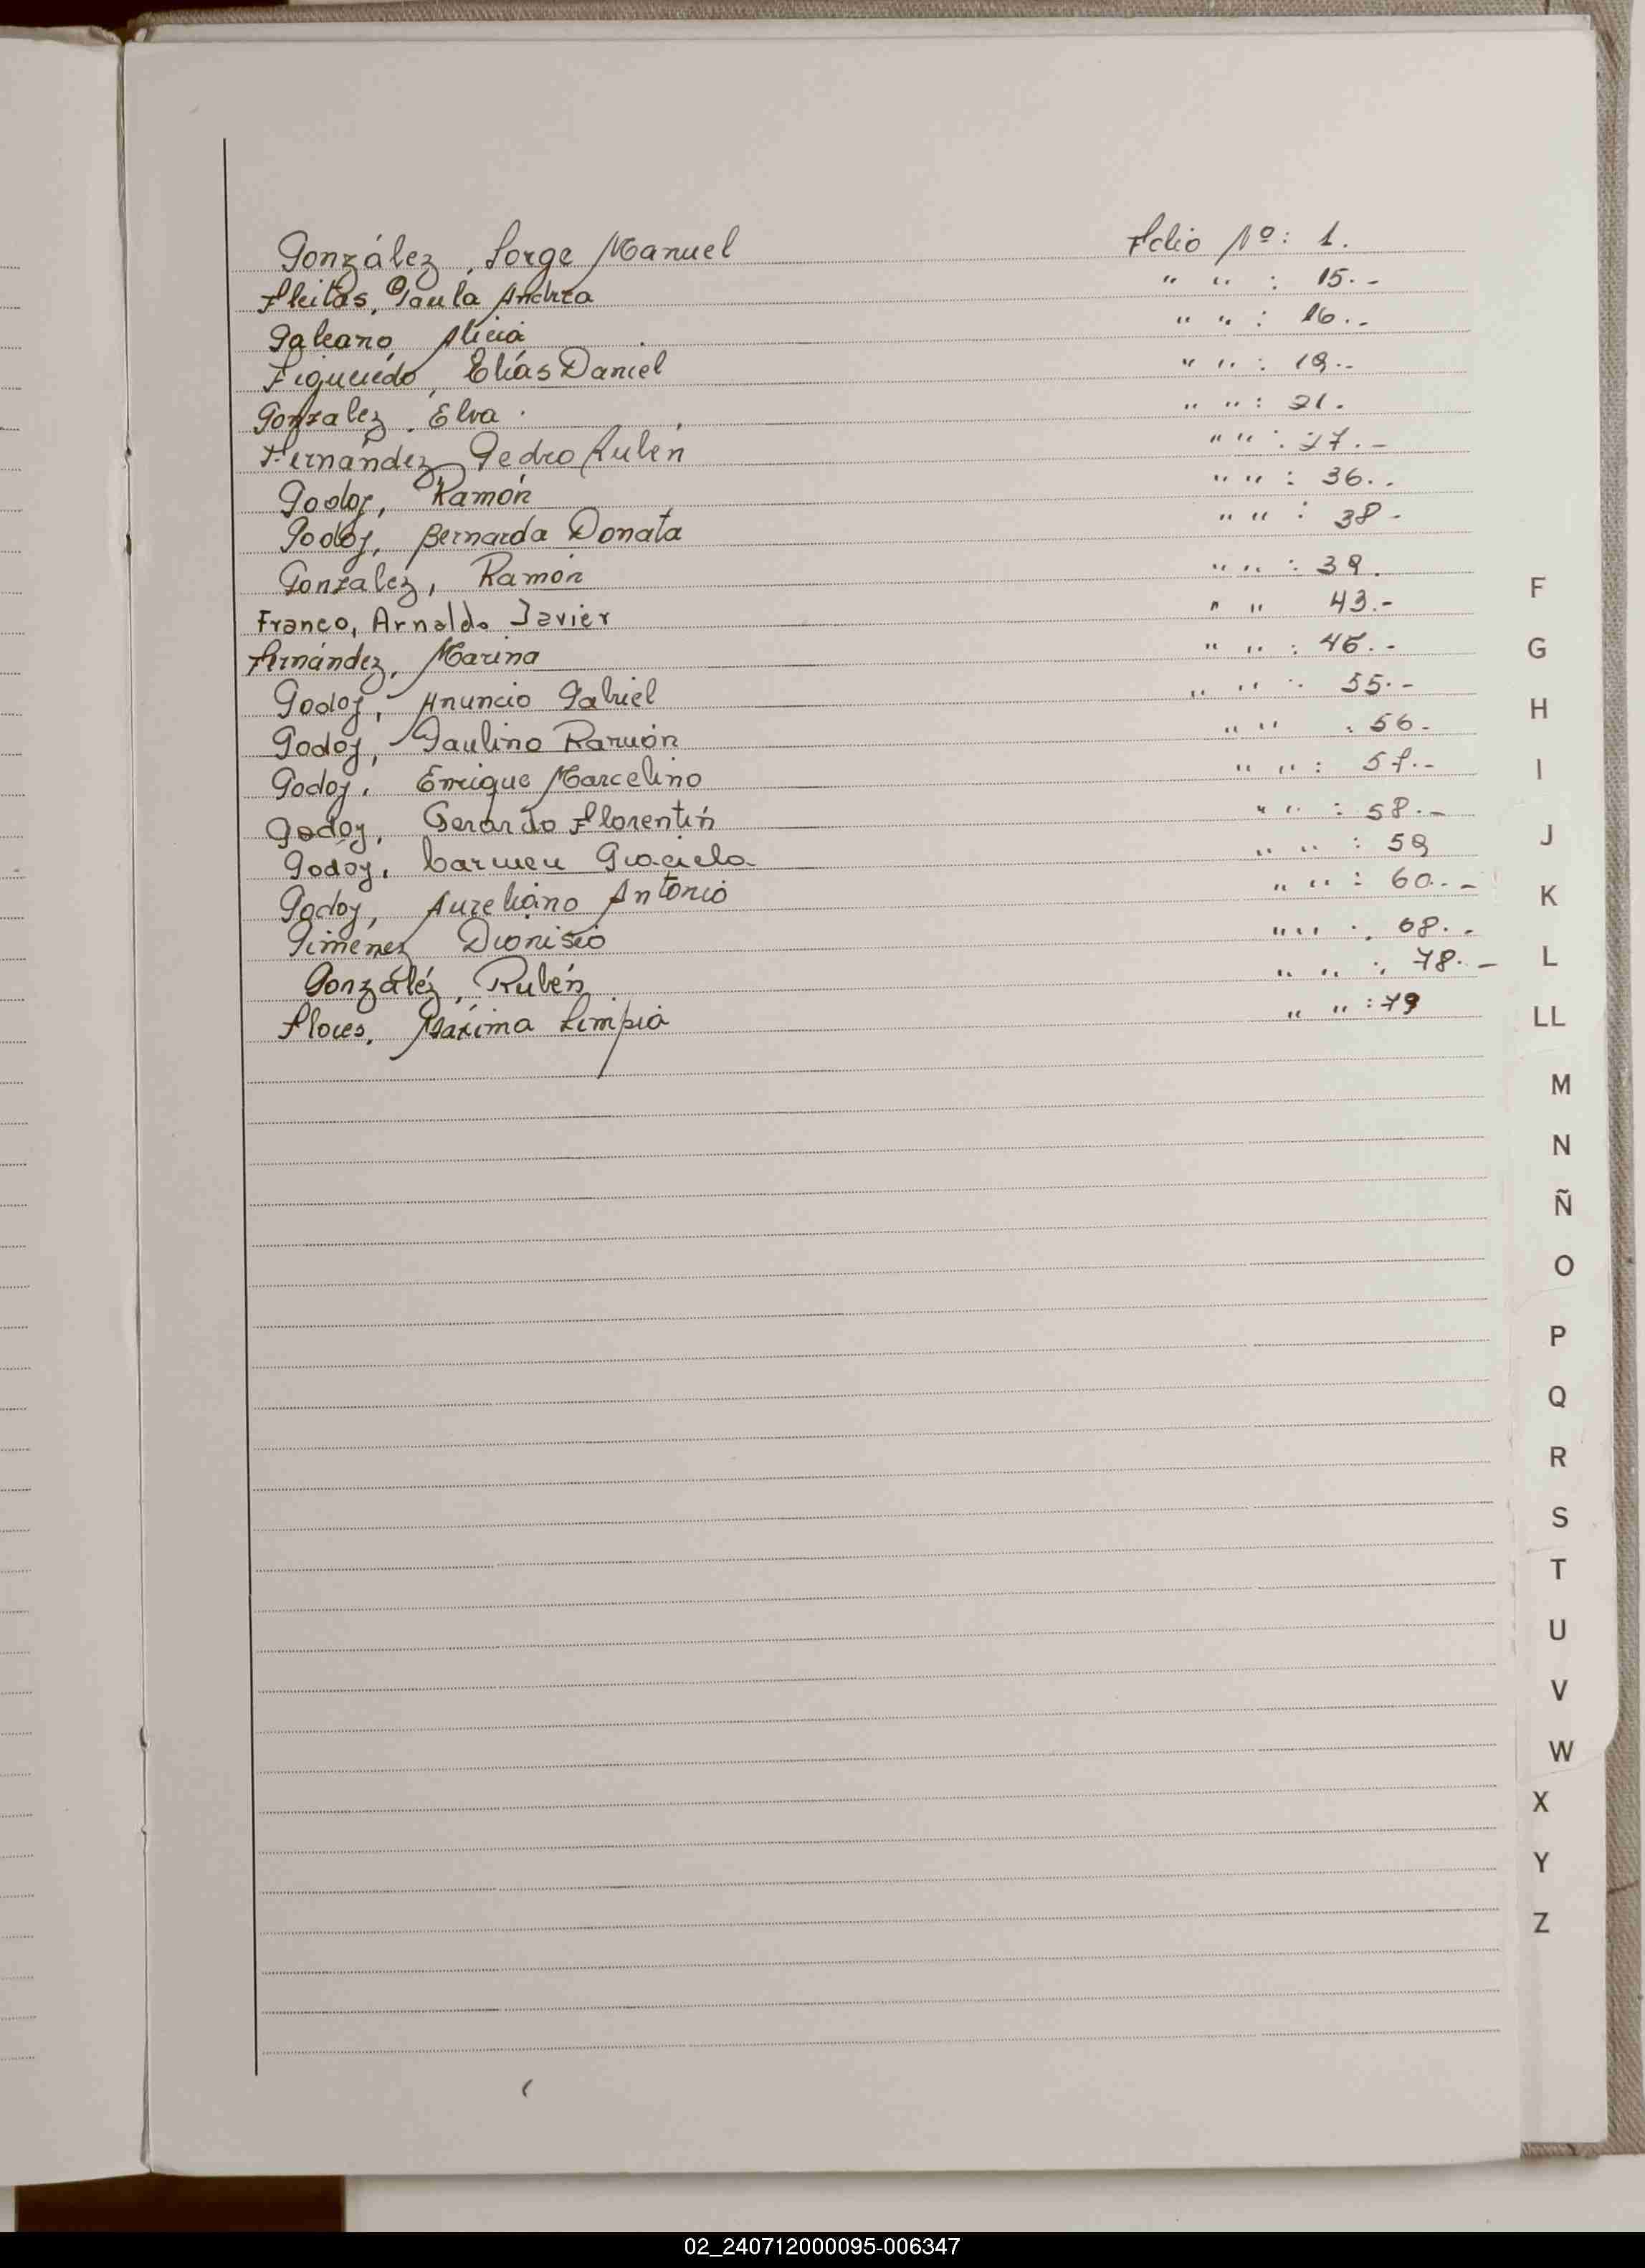 González, Jorge Manuel Folio Nº: 1.
Fleitas, Paula Andrea " " : 15.-
Galeano, Alicia " " : 16.-
Figueredo, Elías Daniel " " : 19.-
Gonzalez, Elva " " : 21.
Fernández, Pedro Rubén " " : 27.-
Godoy, Ramón " " : 36.-
Godoy, Bernarda Donata " " : 38-
Gonzalez, Ramón " " : 39.
Franco, Arnaldo Javier " " 43.-
Fernández, Marina " " : 46.-
Godoy, Anuncio Gabriel " " : 55.-
Godoy, Paulino Ramón " " : 56-
Godoy, Enrique Marcelino " " : 57.-
Godoy, Gerardo Florentín " " : 58.-
Godoy, Carmen Graciela " " : 59
Godoy, Aureliano Antonio " " : 60.-
Gimenez, Dionisio " " : 68.-
González, Rubén " " : 78.-
Flores, Máxima Limpia " " : 79
F
G
H
I
J
K
L
LL
M
N
Ñ
O
P
Q
R
S
T
U
V
W
X
Y
Z
02_240712000095-006347